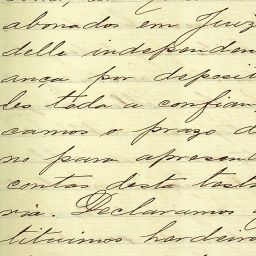 abonados em Juiz
delle independen
ança por deposit
les toda a confian
camos o prazo d
no para apresent
contas desta testa
ria. Declaramos q
tituimos herdeiro